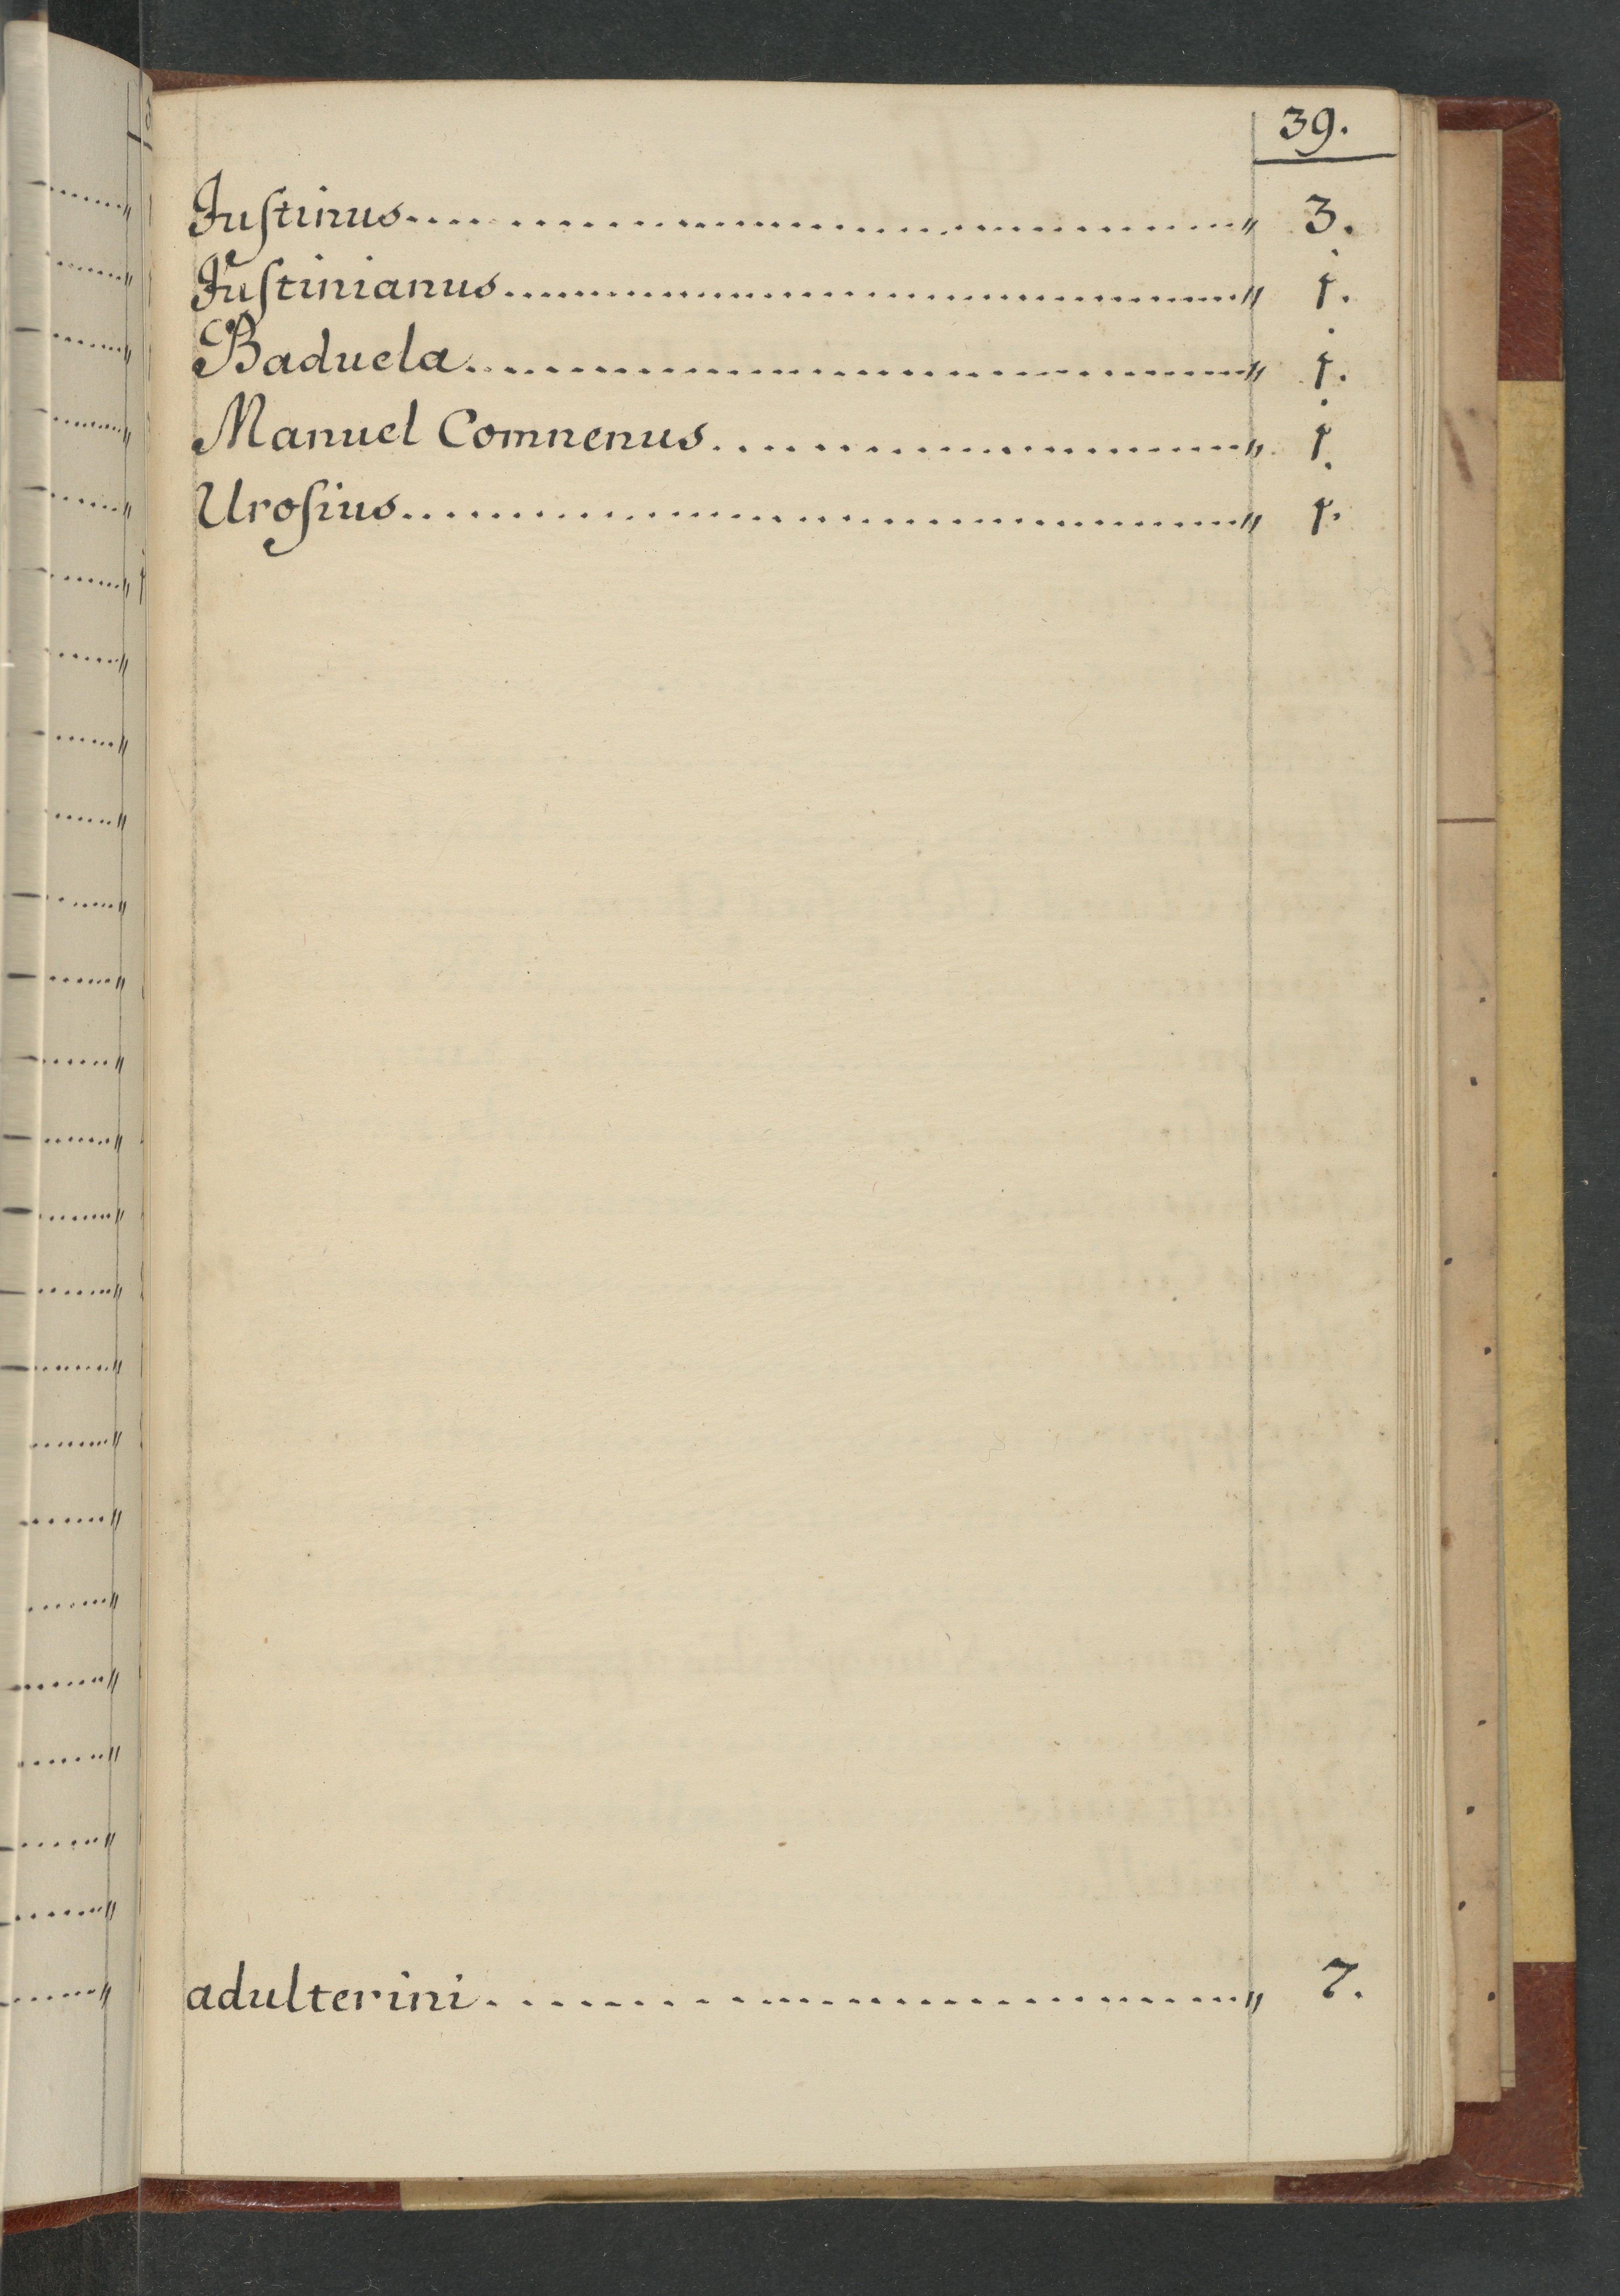 39.
Juſtinus ........ " 3.
Juſtinianus ........ " 1.
Baduela ........ " 1.
Manuel Comnenus ........ " 1.
Uroſius ........ " 1.
adulterini ........ " 7.